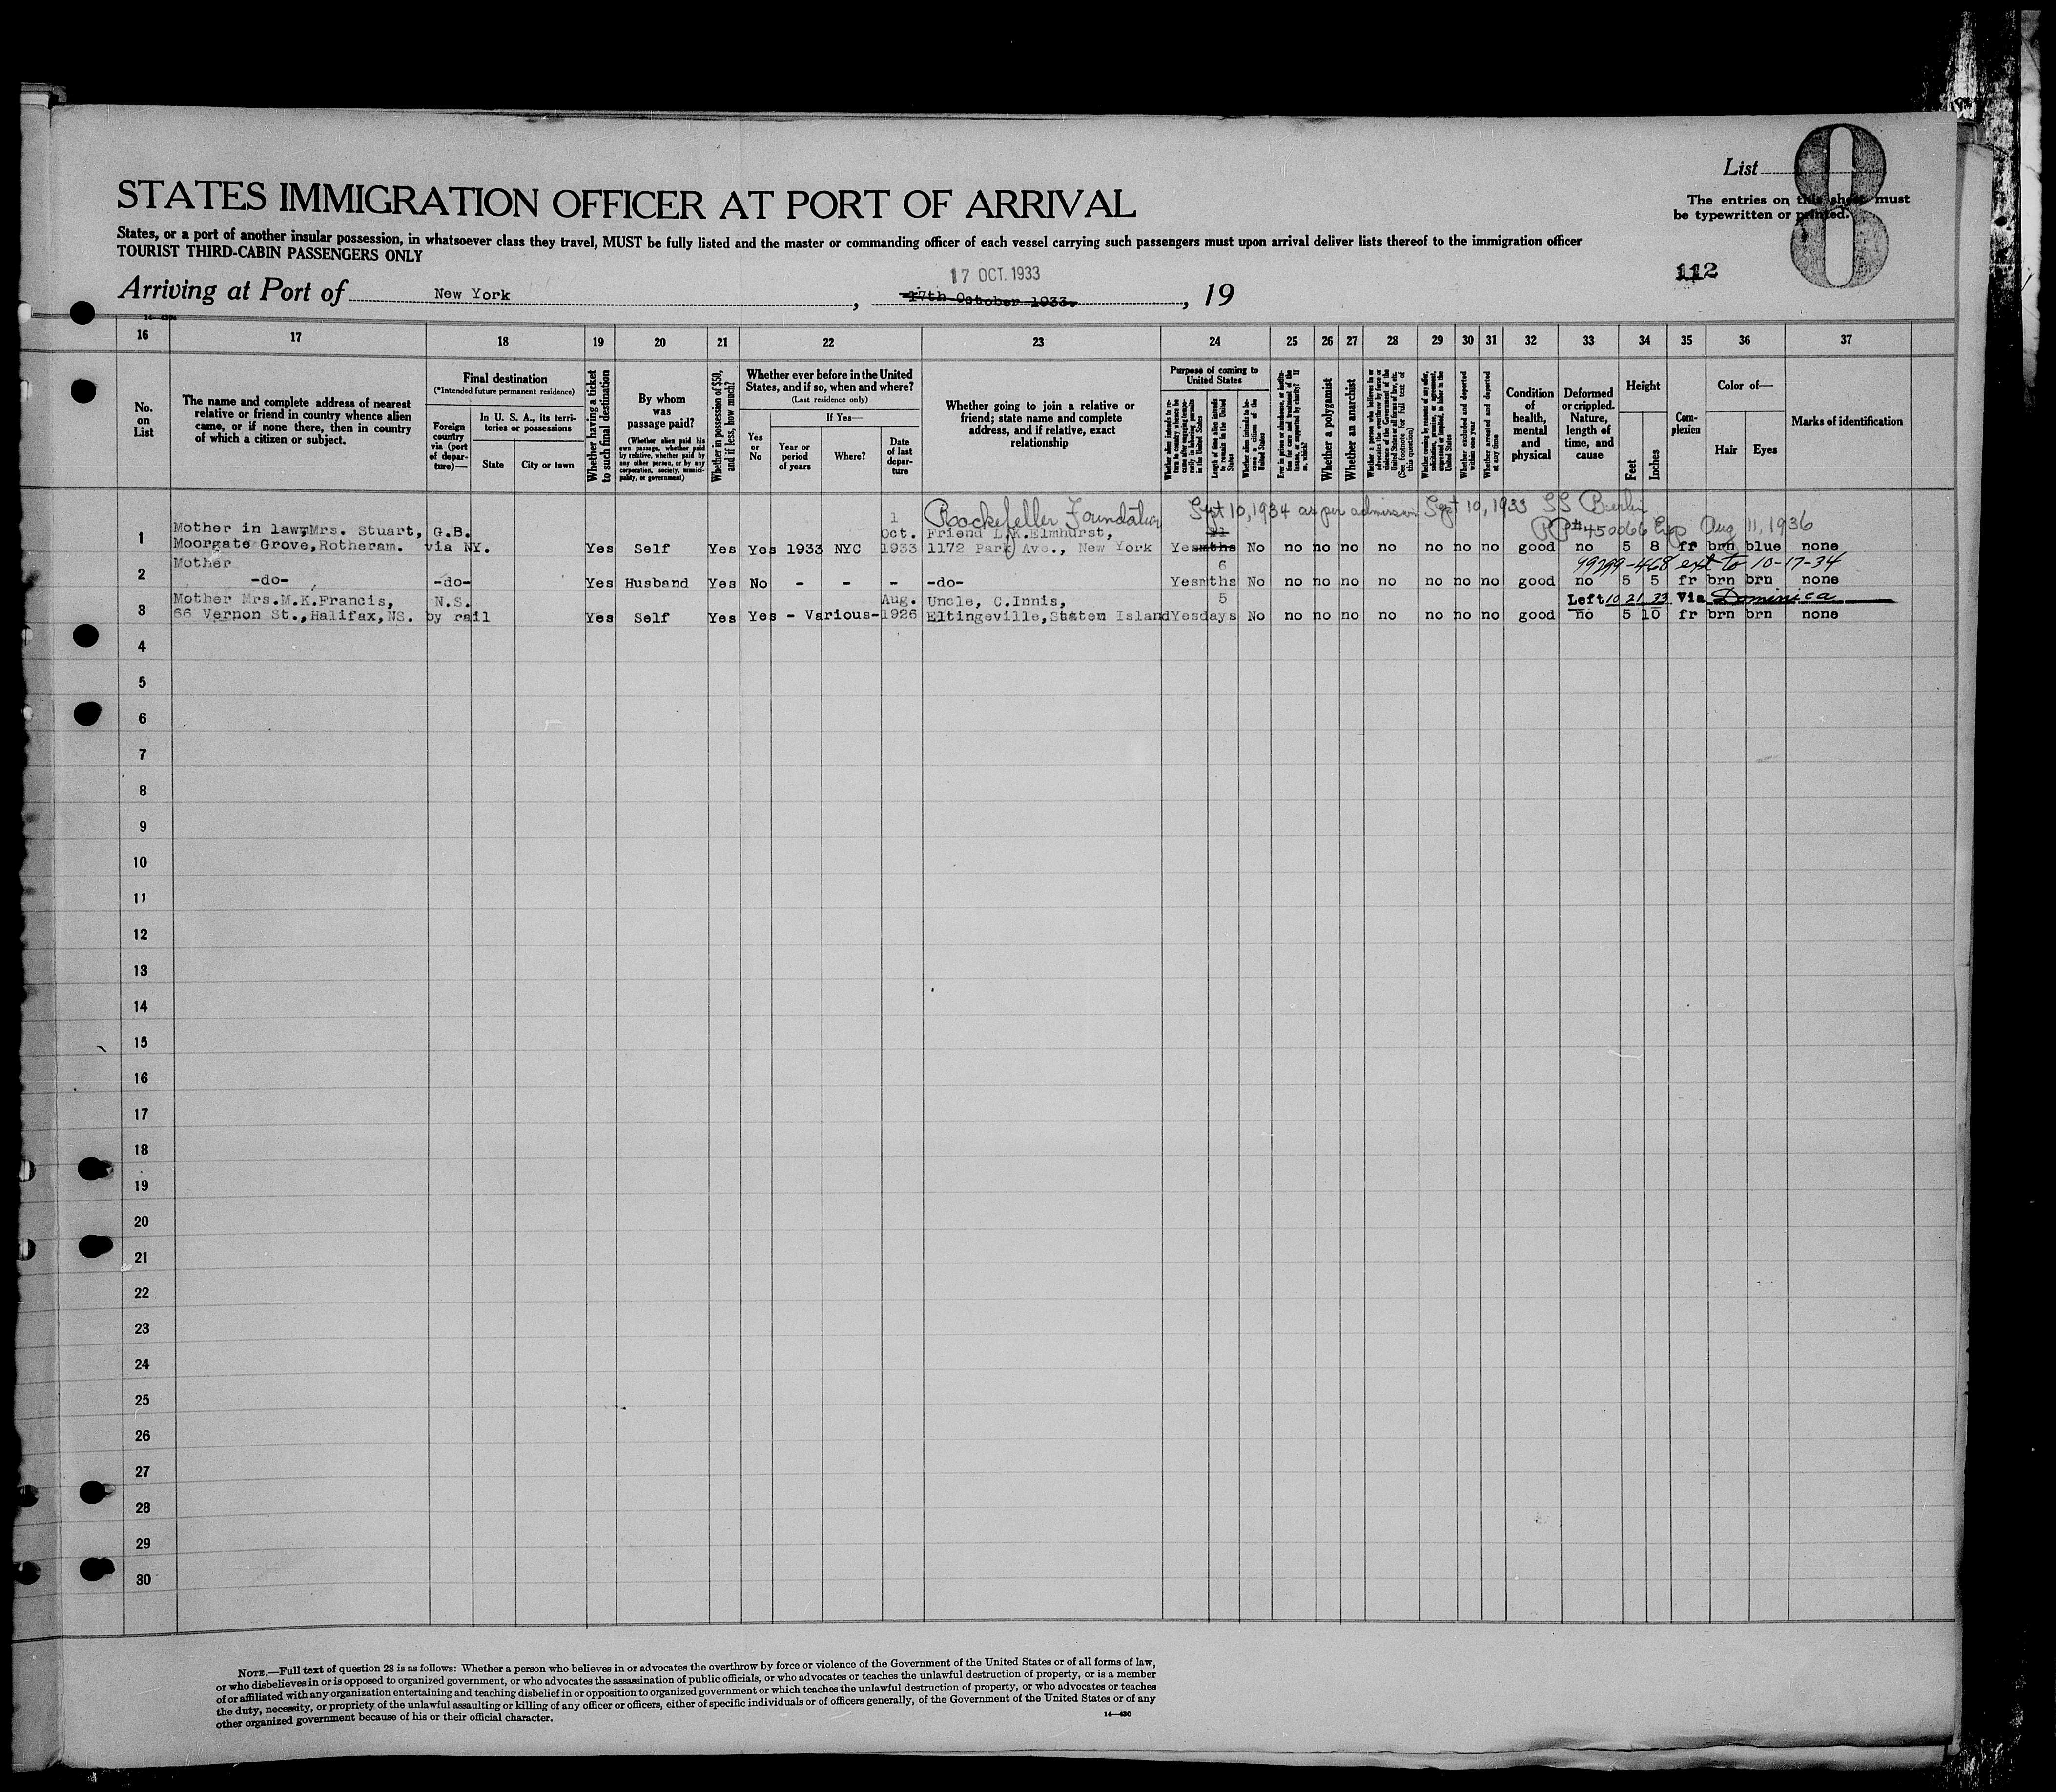 List
8
The entries on this sheet must
be typewritten or printed.
112
STATES IMMIGRATION OFFICER AT PORT OF ARRIVAL
States, or a port of another insular possession, in whatsoever class they travel, MUST be fully listed and the master or commanding officer of each vessel carrying such passengers must upon arrival deliver lists thereof to the immigration officer
TOURIST THIRD-CABIN PASSENGERS ONLY
17 OCT. 1933
Arriving at Port of New York, 17th October 1933., 19
16 17 18 19 20 21 22 23 24 25 26 27 28 29 30 31 32 33 34 35 36 37
No. on List
The name and complete address of nearest
relative or friend in country whence alien
came, or if none there, then in country
of which a citizen or subject.
Final destination
(*Intended future permanent residence)
Foreign country via (port of departure)—
In U. S. A., its territories or possessions
State
City or town
Whether having a ticket to such final destination
By whom was passage paid?
(Whether alien paid his own passage, whether paid by relative, whether paid by any other person, or by any corporation, society, municipality, or government)
Whether in possession of $50, and if less, how much?
Whether ever before in the United
States, and if so, when and where?
(Last residence only)
Yes or No
If Yes—
Year or period of years
Where?
Date of last departure
Whether going to join a relative or
friend; state name and complete
address, and if relative, exact
relationship
Purpose of coming to United States
Whether alien intends to return to country whence he came after engaging temporarily in laboring pursuits in the United States
Length of time alien intends to remain in the United States
Whether alien intends to become a citizen of the United States
Ever in prison or almshouse, or institution for care and treatment of the insane, or supported by charity? If so, which?
Whether a polygamist
Whether an anarchist
Whether a person who believes in or advocates the overthrow by force or violence of the Government of the United States or all forms of law, etc. (See footnote for full text of this question)
Whether coming by reasons of any offer, solicitation, promise, or agreement, expressed or implied, to labor in the United States
Whether excluded and deported within one year
Whether arrested and deported at any time
Condition of health, mental and physical
Deformed or crippled. Nature, length of time, and cause
Height
Feet
Inches
Complexion
Color of—
Hair
Eyes
Marks of identification
Rockefeller Foundation Sept 10, 1934 as per admission Sept 10, 1933 SS Berlin
PP# 450066 Exp Aug 11, 1936
1 Mother in law, Mrs. Stuart, G.B. 1 Oct. Friend L.K. Elmhurst, 11
Moorgate Grove, Rotheram. via NY. Yes Self Yes Yes 1933 NYC 1933 1172 Park Ave., New York Yes mths No no no no no no no no good no 5 8 fr brn blue none
99299-468 ext to 10-17-34
2 Mother 6
-do- -do- Yes Husband Yes No - - - -do- Yes mths No no no no no no no no good no 5 5 fr brn brn none
Left 10 21 33 Via Dominica
3 Mother Mrs.M.K.Francis, N.S. Aug. Uncle, C.Innis, 5
66 Vernon St., Halifax, NS. by rail Yes Self Yes Yes - Various- 1926 Eltingeville, Staten Island Yes days No no no no no no no no good no 5 10 fr brn brn none
4
5
6
7
8
9
10
11
12
13
14
15
16
17
18
19
20
21
22
23
24
25
26
27
28
29
30
NOTE.—Full text of question 28 is as follows: Whether a person who believes in or advocates the overthrow by force or violence of the Government of the United States or of all forms of law,
or who disbelieves in or is opposed to organized government, or who advocates the assassination of public officials, or who advocates or teaches the unlawful destruction of property, or is a member
of or affiliated with any organization entertaining and teaching disbelief in or opposition to organized government or which teaches the unlawful destruction of property, or who advocates or teaches
the duty, necessity, or propriety of the unlawful assaulting or killing of any officer or officers, either of specific individuals or of officers generally, of the Government of the United States or of any
other organized government because of his or their official character.
14—430